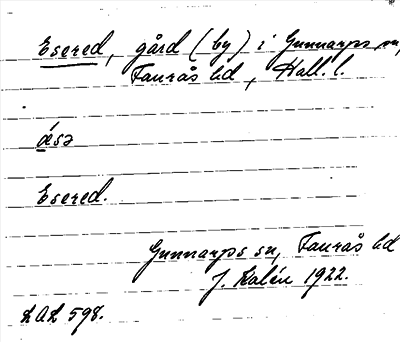 Esered, gård (by) i Gunnarps sn,
Faurås hd, Hall. l.
ásə
Esered.
Gunnarps sn, Faurås hd
J. Kalén 1922.
LAL 598.